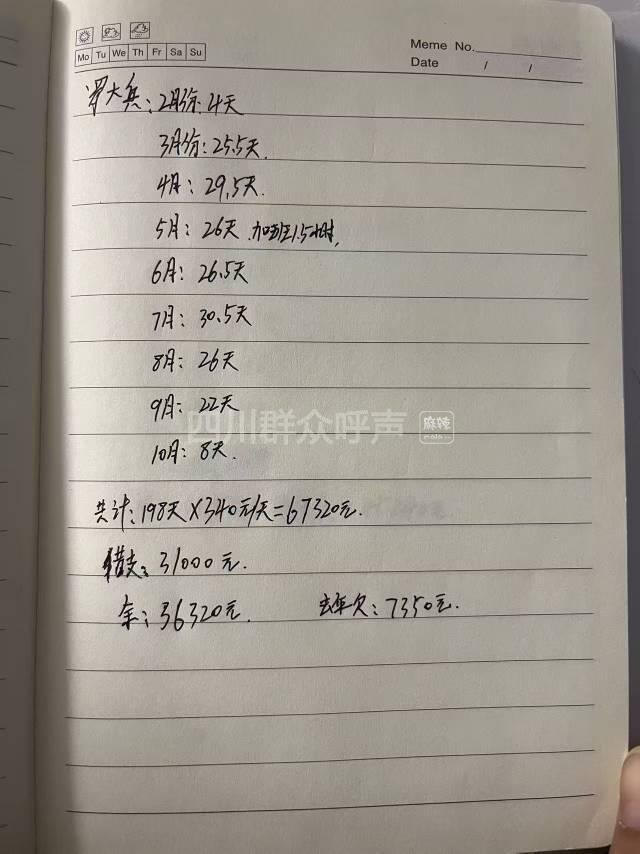 Mo Tu We Th Fr Sa Su
Meme No.
Date / /
罗大兵:2月份:4天
3月份:25.5天.
4月:29.5天.
5月:26天.加班1.5小时,
6月:26.5天
7月:30.5天
8月:26天
9月:22天
10月:8天.
四川群众呼声 麻辣
共计:198天×340元/天=67320元.
借支:31000元.
余:36320元. 去年欠:7350元.